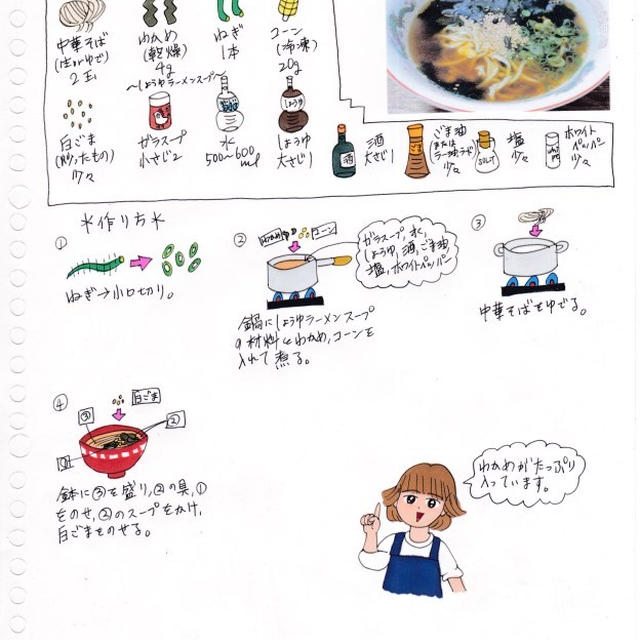 中華そば
(生orゆで)
2玉
わかめ
(乾燥)
4g
ねぎ
1本
コーン
(冷凍)
20g
〜しょうゆラーメンスープ〜
白ごま
(炒ったもの)
少々
ガラスープ
小さじ2
水
500〜600
ml
しょうゆ
しょうゆ
大さじ1
酒
酒
大さじ1
ごま油
(または
ラー油,ラード)
少々
SOLT
塩
少々
ホワイト
ペッパー
少々
*作り方*
①
ねぎ→小口切り。
②
わかめ
コーン
ガラスープ,水,
しょうゆ,酒,ごま油
塩,ホワイトペッパー
鍋にしょうゆラーメンスープ
の材料とわかめ,コーンを
入れて煮る。
③
中華そばをゆでる。
④
白ごま
③
②
①
鉢に③を盛り,②の具,①
をのせ,②のスープをかけ,
白ごまをのせる。
わかめがたっぷり
入っています。